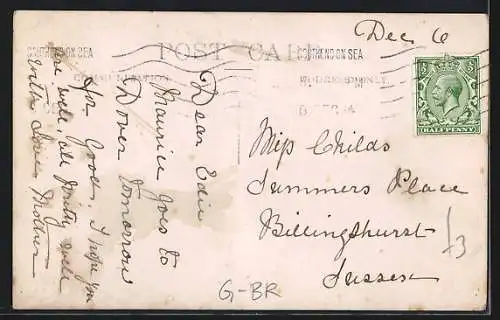 Dec 6
SOUTHEND ON SEA
SOUTHEND ON SEA
POST CARD
HALFPENNY
Dear Edie
Maurice goes to
Dover tomorrow
for Good. I hope you
are well, all pretty well
with love Mother
Miss Childs
Summers Place
Billingshurst
Sussex
£3
G-BR